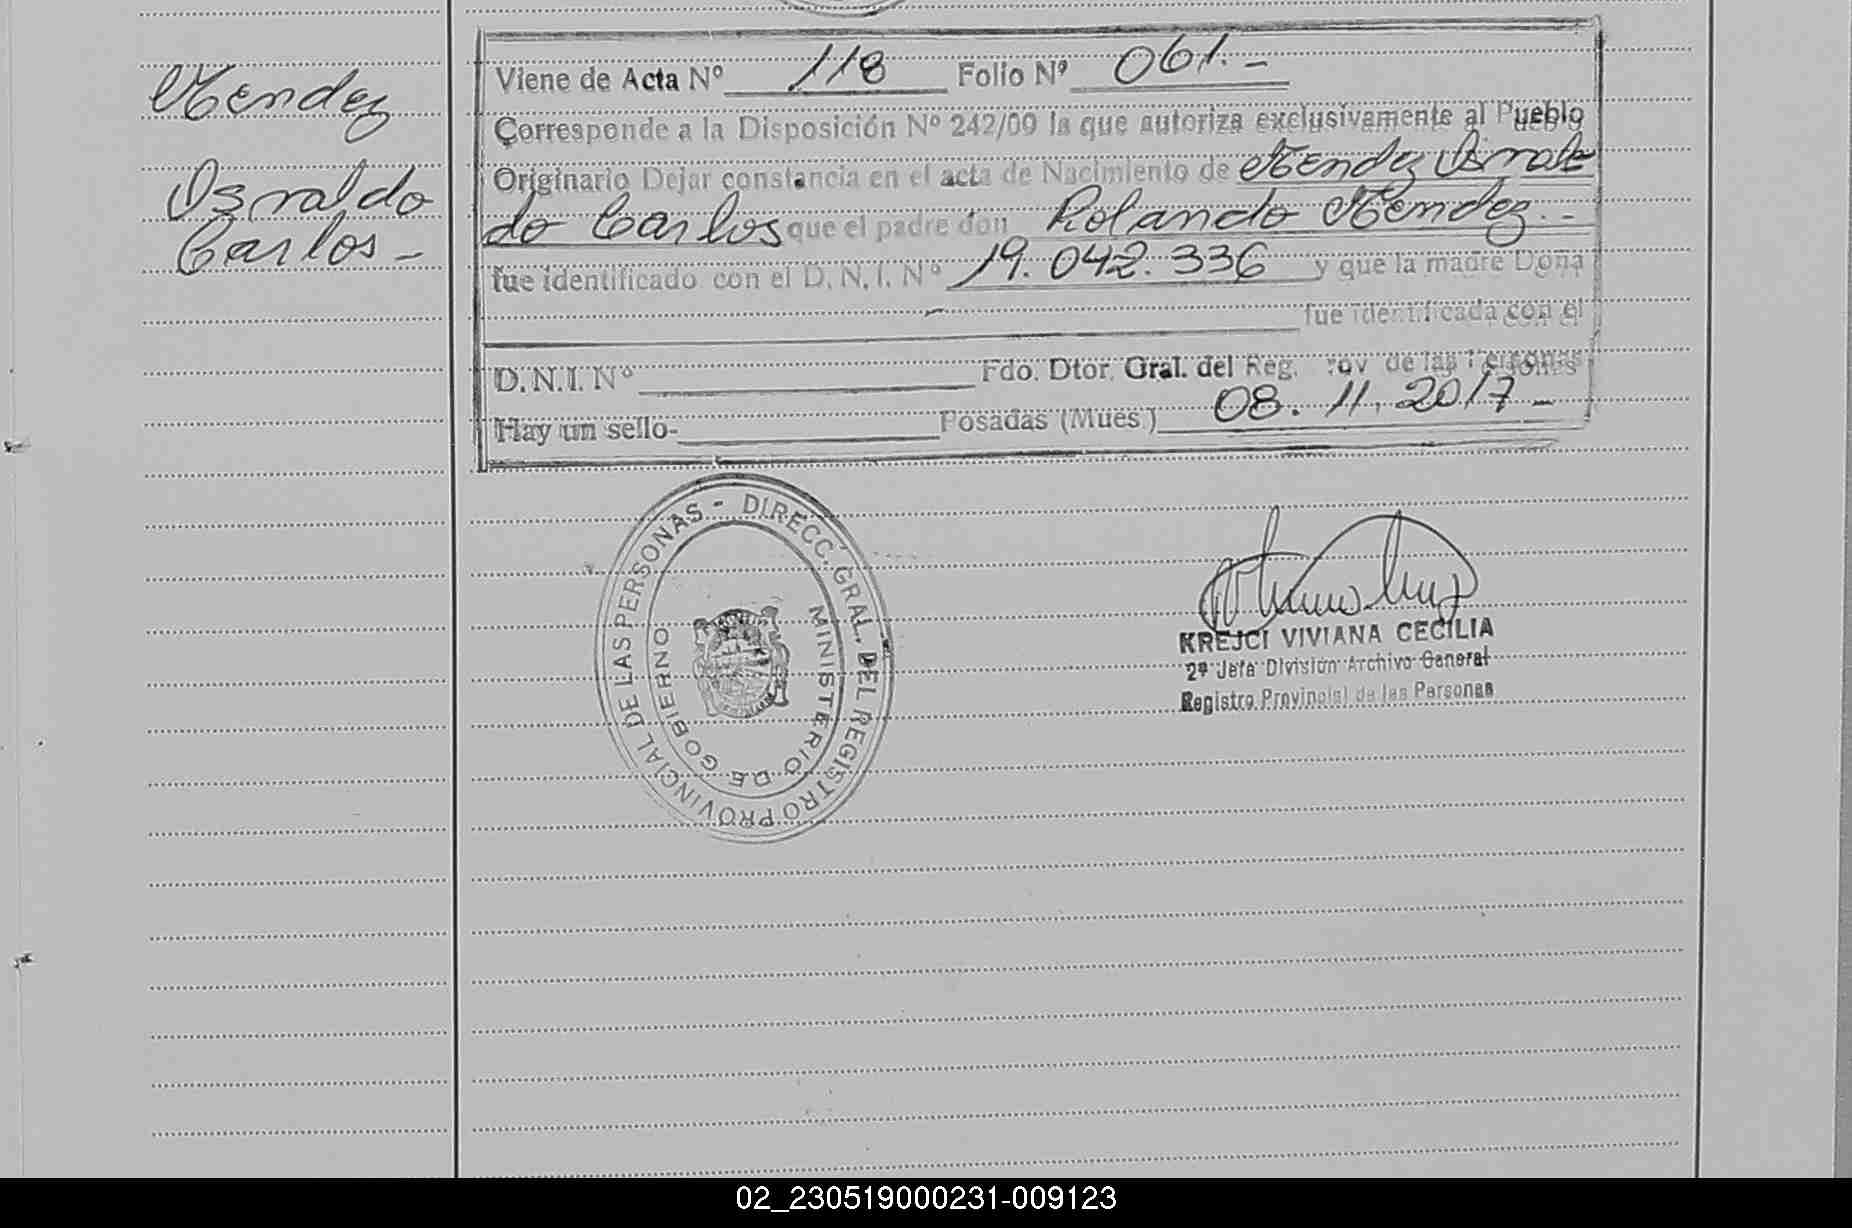 Mendez
Osvaldo
Carlos -
Viene de Acta Nº 118 Folio Nº 061. -
Corresponde a la Disposición Nº 242/09 la que autoriza exclusivamente al Pueblo
Originario Dejar constancia en el acta de Nacimiento de Mendez Osval
do Carlos que el padre don Rolando Mendez. -
fue identificado con el D.N.I. Nº 19.042.336 y que la madre Doña
fue identificada con el
D.N.I. Nº Fdo. Dtor. Gral. del Reg. rov de las Personas
Hay un sello- Posadas (Mnes.) 08. 11. 2017 -
DIRECC. GRAL. DEL REGISTRO PROVINCIAL DE LAS PERSONAS -
MINISTERIO DE GOBIERNO
KREJCI VIVIANA CECILIA
2ª Jefa División Archivo General
Registro Provincial de las Personas
02_230519000231-009123